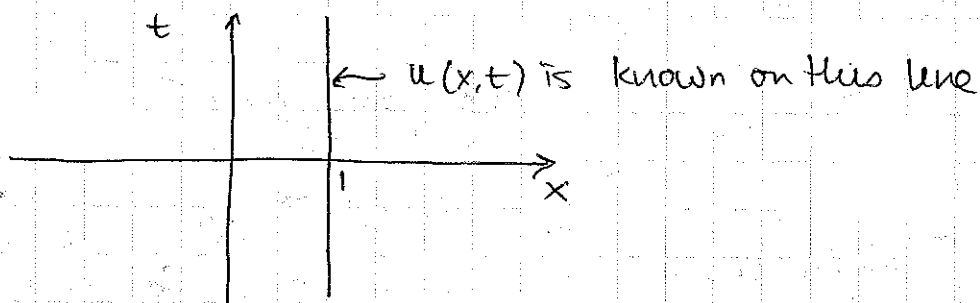 t
u(x,t) is known on this line
1
x